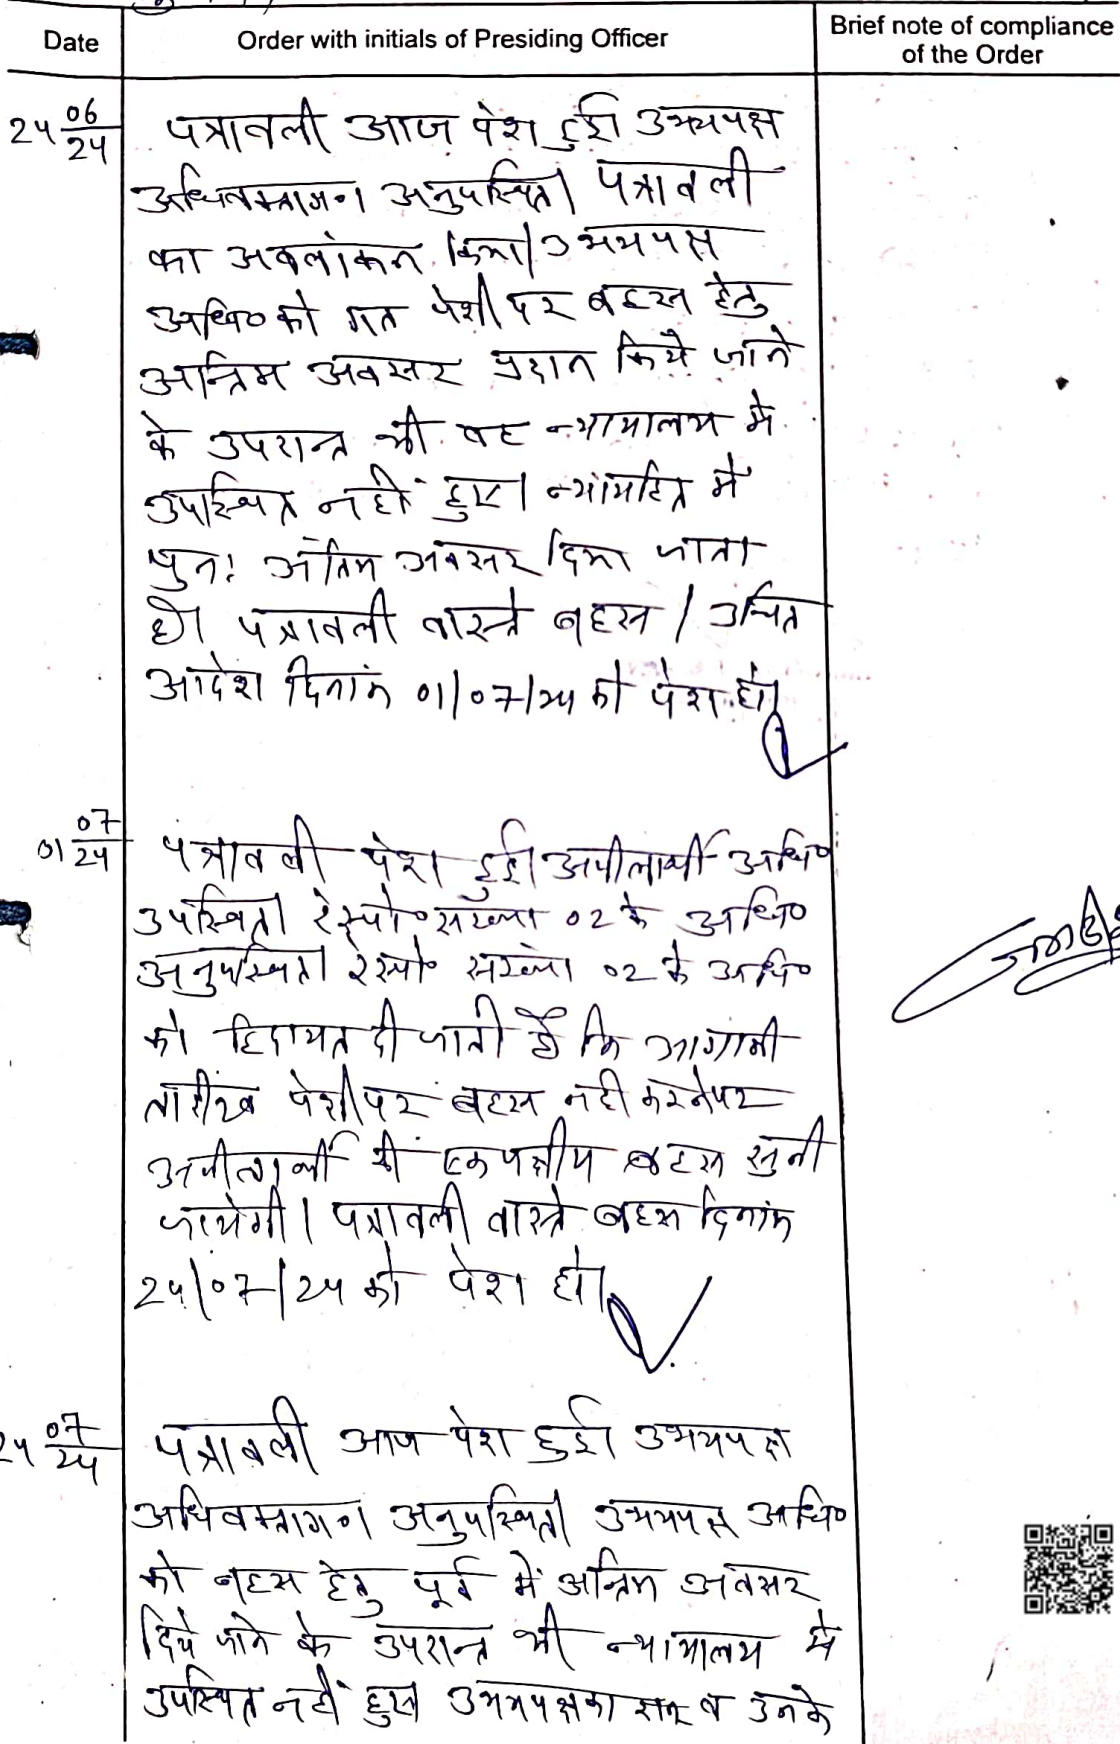 Date
Order with initials of Presiding Officer
Brief note of compliance of the Order
24 06/24
पत्रावली आज पेश हुई। उभयपक्ष
अधिवक्तागण अनुपस्थित। पत्रावली
का अवलोकन किया। उभयपक्ष
अधि० को गत पेशी पर बहस हेतु
अन्तिम अवसर प्रदान किये जाने
के उपरान्त भी वह न्यायालय मे
उपस्थित नहीं हुए। न्यायहित में
पुनः अंतिम अवसर दिया जाता
है। पत्रावली वास्ते बहस / उचित
आदेश दिनांक 01/07/24 को पेश हो।
01 07/24
पत्रावली पेश हुई। अपीलार्थी अधि०
उपस्थित। रेस्पो० संख्या 02 के अधि०
अनुपस्थित। रेस्पो० संख्या 02 के अधि०
को हिदायत दी जाती है कि आगामी
तारीख पेशी पर बहस नही करने पर
अपीलार्थी की एकपक्षीय बहस सुनी
जायेगी। पत्रावली वास्ते बहस दिनांक
24/07/24 को पेश हो।
24 07/24
पत्रावली आज पेश हुई। उभयपक्ष
अधिवक्तागण अनुपस्थित। उभयपक्ष अधि०
को बहस हेतु पूर्व में अन्तिम अवसर
दिये जाने के उपरान्त भी न्यायालय मे
उपस्थित नहीं हुए। उभयपक्षकारान व उनके